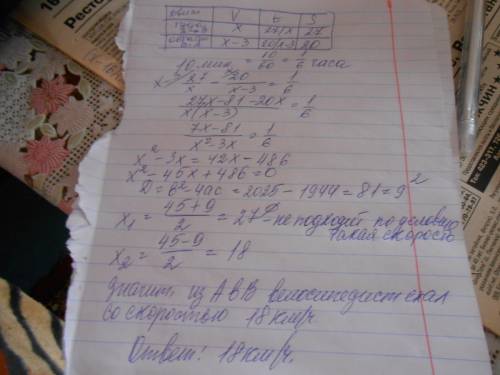 V t S
x 27/x 27
x-3 20/x-3 20
10 мин = 10/60 = 1/6 часа
27/x - 20/x-3 = 1/6
27x-81-20x/x(x-3) = 1/6
7x-81/x²-3x = 1/6
x²-3x=42x-486
x²-45x+486=0
D=b²-4ac=2025-1944=81=9²
x₁=45+9/2=27 - не подходит по условию
такая скорость
x₂=45-9/2=18
Значит из А в В велосипедист ехал
со скоростью 18 км/ч.
Ответ: 18 км/ч.